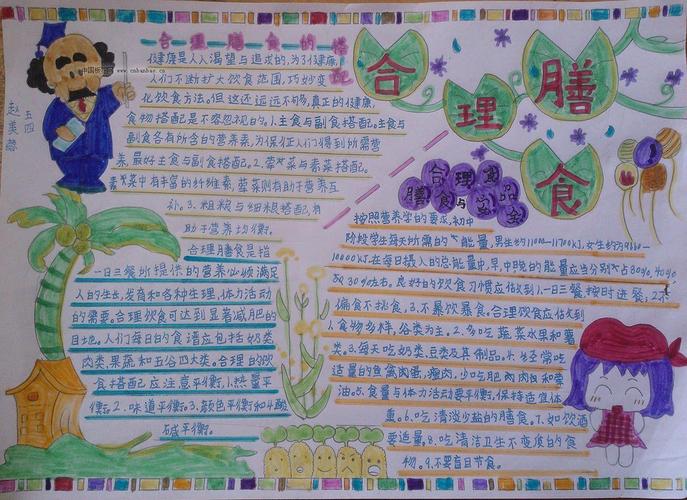 合理膳食的搭配
健康是人人渴望与追求的,为了健康,
人们不断扩大饮食范围,巧妙变
化饮食方法。但这还远远不够,真正的健康,
食物搭配是不容忽视的。1.主食与副食搭配。主食与
副食各有所含的营养素,为保证人们得到所需营
养,最好主食与副食搭配。2.荤菜与素菜搭配。
素菜中有丰富的纤维素,荤菜则有助于营养互
补。3.粗粮与细粮搭配,有
助于营养均衡。
中国板报网 www.cnbanbao.cn
五四
赵美
合理膳食是指
一日三餐所提供的营养必须满足
人的生长,发育和各种生理、体力活动
的需要。合理饮食可达到显著减肥的
目地。人们每日的食谱应包括奶类,
肉类,果蔬和五谷四大类。合理的饮
食搭配应注意平衡。1.热量平
衡。2.味道平衡。3.颜色平衡和4酸
碱平衡。
合理膳食
合理
膳食与
按照营养学的要求,初中
阶段学生每天所需的能量,男生约11000-11700kJ,女生约为9660-
10000kJ,在每日摄入的总能量中,早、中晚的能量应当分别占30%,40%
及30%左右,良好的饮食习惯应做到1.一日三餐,按时进餐,2.不
偏食不挑食。3.不暴饮暴食。合理饮食应做到
1.食物多样,谷类为主。2.多吃蔬菜水果和薯
类。3.每天吃奶类、豆类及其制品。4.经常吃
适量的鱼禽肉蛋,瘦肉,少吃肥肉肉皮和荤
油。5.食量与体力活动要平衡,保持适宜体
重。6.吃清淡少盐的膳食。7.如饮酒
要适量。8.吃清洁卫生不变质的食
物。9.不要盲目节食。